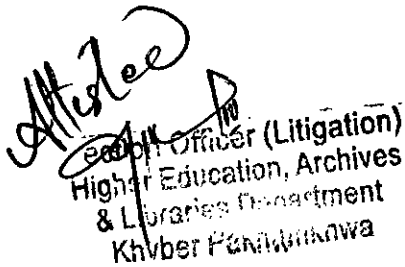 Attested
Section Officer (Litigation)
Higher Education, Archives
& Libraries Department
Khyber Pakhtunkhwa